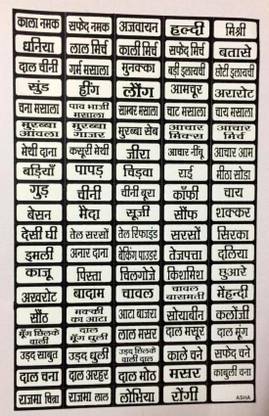 काला नमक सफेद नमक अजवायन हल्दी मिश्री
धनिया लाल मिर्च काली मिर्च सफेद मिर्च बतासे
दाल चीनी गर्म मसाला मुनक्का बड़ी इलायची छोटी इलायची
सुंड हींग लौंग आमचूर अरारोट
चना मसाला पाव भाजी मसाला साम्बर मसाला चाट मसाला चाय मसाला
मुरब्बा आंवला मुरब्बा गाजर मुरब्बा सेब आचार मिक्स आचार मिर्च
मेथी दाना कसूरी मेथी जीरा आचार नींबू आचार आम
बड़ियाँ पापड़ चिड़वा राई मीठा सोडा
गुड़ चीनी चीनी बूरा कॉफी चाय
बेसन मैदा सूजी सौंफ शक्कर
देसी घी तेल सरसों तेल रिफाइंड सरसों सिरका
इमली अनार दाना बेकिंग पाउडर तेजपत्ता दलिया
काजू पिस्ता चिलगोजे किशमिश छुआरे
अखरोट बादाम चावल चावल बासमती मेंहन्दी
सौंठ मक्की का आटा आटा बाजरा सोयाबीन कलौंजी
मूँग छिलके वाली दाल मूँग धुली लाल मसर दाल मसूर दाल मूंग
उड़द साबुत उड़द धुली उड़द छिलके वाली दाल काले चने सफेद चने
दाल चना दाल अरहर दाल मोठ मसर काबुली चना
राजमा चित्रा राजमा लाल लोभिया रोंगी ASHA